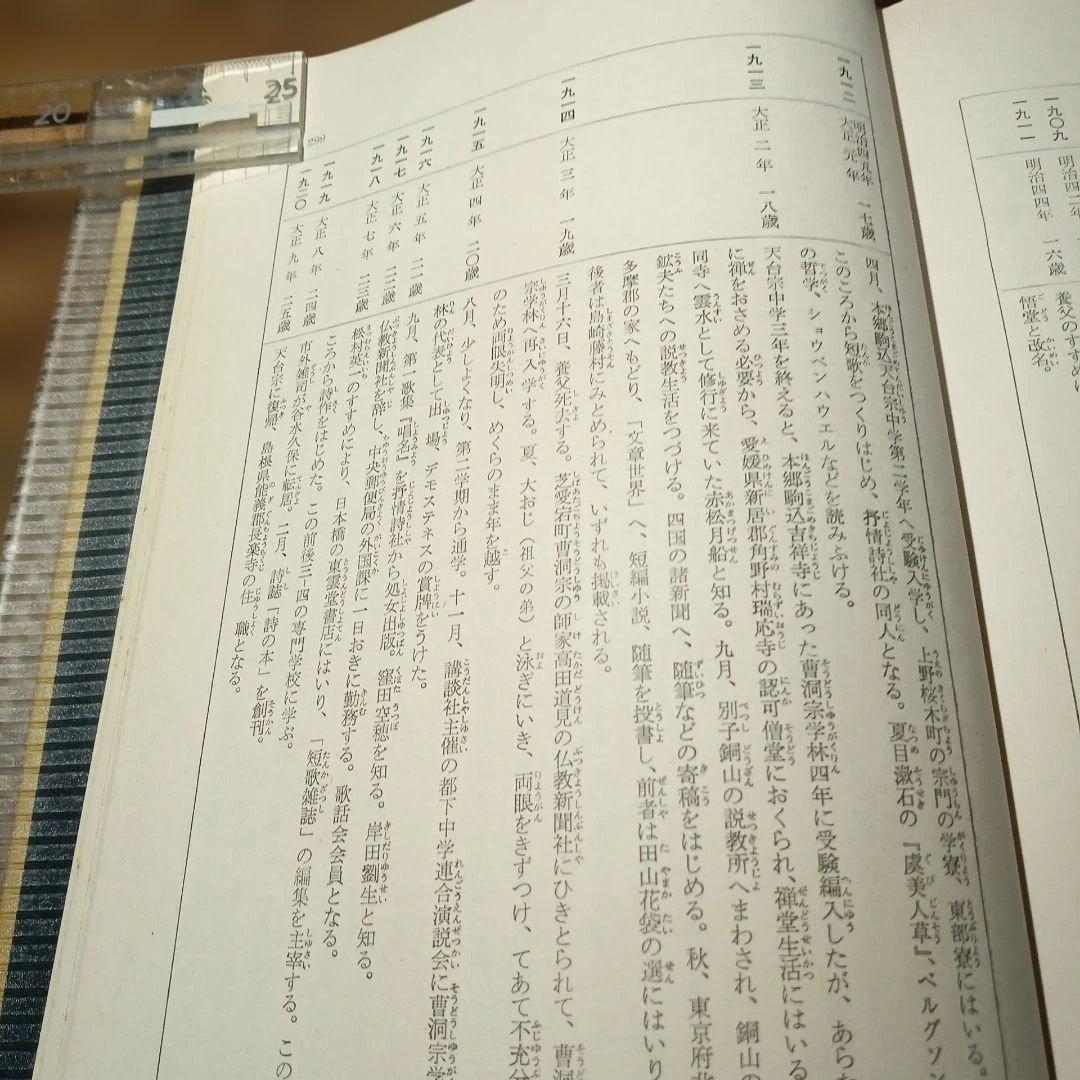 一九〇九 明治四二年 一六歳 養父のすすめに
一九一一 明治四四年 悟堂と改名。
一九一二 明治四五年 大正元年 一七歳 四月、本郷駒込天台宗中学第二学年へ受験入学し、上野桜木町の宗門の学寮、東部寮にはいる。
このころから短歌をつくりはじめ、抒情詩社の同人となる。夏目漱石の『虞美人草』、ベルグソン
の哲学、ショウペンハウエルなどを読みふける。
一九一三 大正二年 一八歳 天台宗中学三年を終えると、本郷駒込吉祥寺にあった曹洞宗学林四年に受験編入したが、あら
に禅をおさめる必要から、愛媛県新居郡角野村瑞応寺の認可僧堂におくられ、禅堂生活にはいる
同寺へ雲水として修行に来ていた赤松月船と知る。九月、別子銅山の説教所へまわされ、銅山の
鉱夫たちへの説教生活をつづける。四国の諸新聞へ、随筆などの寄稿をはじめる。秋、東京府北
多摩郡の家へもどり、「文章世界」へ、短編小説、随筆を投書し、前者は田山花袋の選にはいり
後者は島崎藤村にみとめられて、いずれも掲載される。
一九一四 大正三年 一九歳 三月十六日、養父死去する。芝愛宕町曹洞宗の師家高田道見の仏教新聞社にひきとられて、曹洞
宗学林へ再入学する。夏、大おじ（祖父の弟）と泳ぎにいき、両眼をきずつけ、てあて不充分
のため両眼失明し、めくらのまま年を越す。
一九一五 大正四年 二〇歳 八月、少しよくなり、第二学期から通学。十一月、講談社主催の都下中学連合演説会に曹洞宗学
林の代表として出場、デモステネスの賞牌をうけた。
一九一六 大正五年 二一歳 九月、第一歌集『唱名』を抒情詩社から処女出版。窪田空穂を知る。岸田劉生と知る。
一九一七 大正六年 二二歳 仏教新聞社を辞し、中央郵便局の外国課に一日おきに勤務する。歌話会会員となる。
一九一八 大正七年 二三歳 松村英一のすすめにより、日本橋の東雲堂書店にはいり、「短歌雑誌」の編集を主宰する。この
ころから詩作をはじめた。この前後三―四の専門学校に学ぶ。
一九一九 大正八年 二四歳 市外雑司が谷水久保に転居。二月、詩誌「詩の本」を創刊。
一九二〇 大正九年 二五歳 天台宗に復帰、島根県能義郡長楽寺の住職となる。
299
20
25